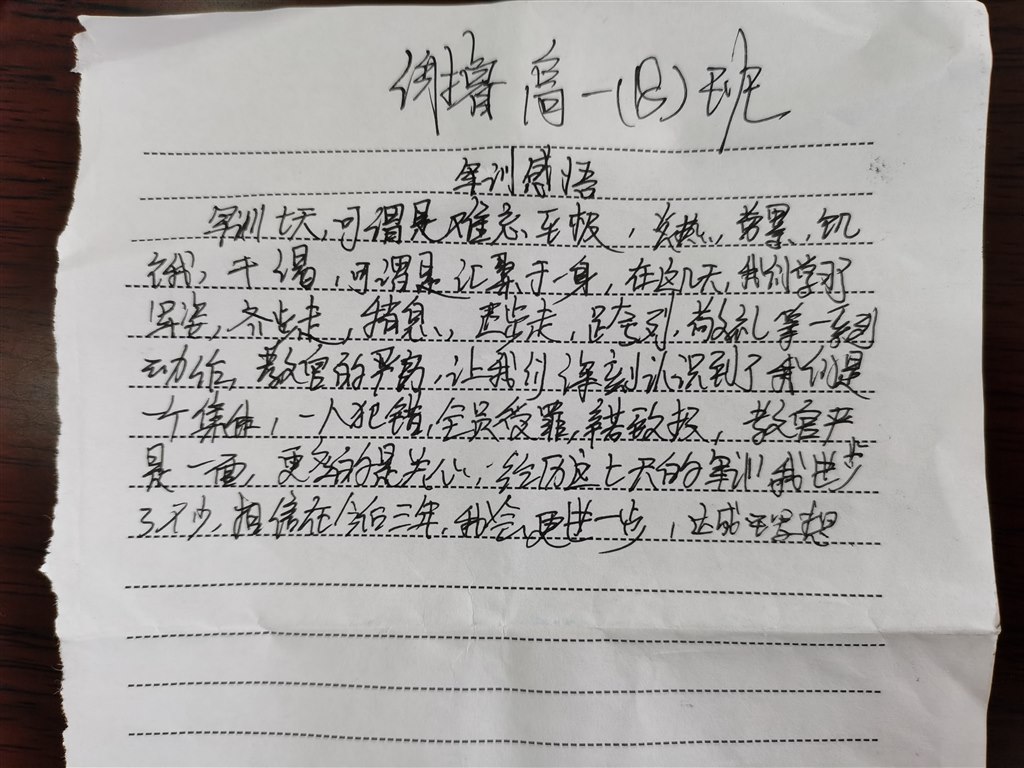 高一(8)班
军训感悟
军训七天,可谓是难忘至极,炎热,劳累,饥
饿,干渴,可谓是汇聚于一身,在这几天,我们学习了
军姿,齐步走,稍息,正步走,跨列,敬礼等一系列
动作,教官的严厉,让我们深刻认识到了我们是
一个集体,一人犯错,全员受罪,教官严
是一面,更多的是关心;经历这七天的军训我进步
了不少,相信在今后三年,我会更进一步,达成理想